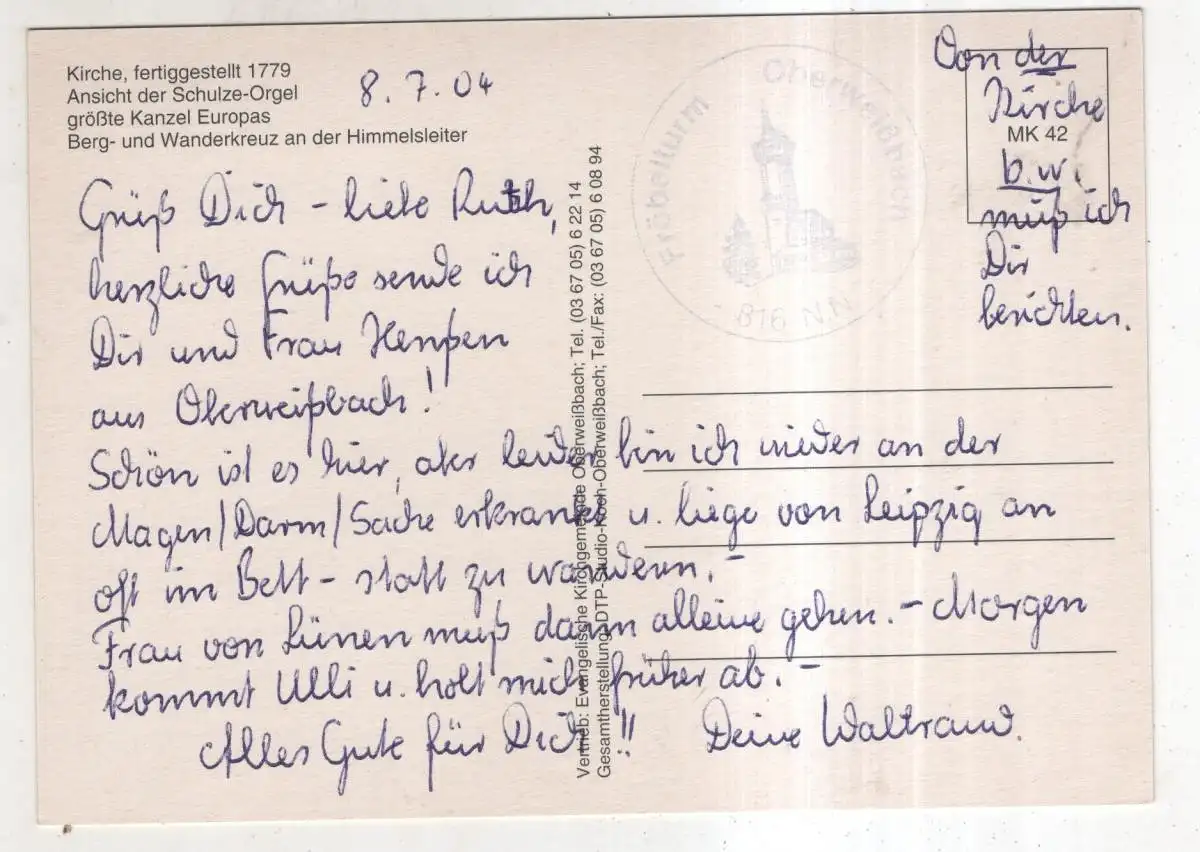 Kirche, fertiggestellt 1779
Ansicht der Schulze-Orgel
größte Kanzel Europas
Berg- und Wanderkreuz an der Himmelsleiter
8. 7. 04
Grüß Dich - liebe Ruth,
herzliche Grüße sende ich
Dir und Frau Henßen
aus Oberweißbach!
Schön ist es hier, aber leider bin ich wieder an der
Magen/Darm/Sache erkrankt u. liege von Leipzig an
oft im Bett - statt zu wandern. -
Frau von Lünen muß dann alleine gehen. - Morgen
kommt Ulli u. holt mich früher ab. -
Alles Gute für Dich!! Deine Waltraud.
Vertrieb: Evangelische Kirchgemeinde Oberweißbach; Tel. (03 67 05) 6 22 14
Gesamtherstellung: DTP-Studio-Koch-Oberweißbach; Tel./Fax: (03 67 05) 6 08 94
Fröbelturm Oberweißbach
- 816 N.N
Von der
Kirche
MK 42
b.w.
muß ich
Dir
berichten.